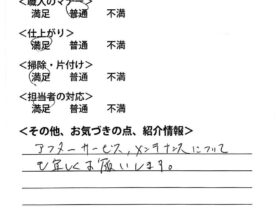 <職人のマナー>
満足 普通 不満
<仕上がり>
満足 普通 不満
<掃除・片付け>
満足 普通 不満
<担当者の対応>
満足 普通 不満
<その他、お気づきの点、紹介情報>
アフターサービス,メンテナンスについて
も宜しくお願いします。